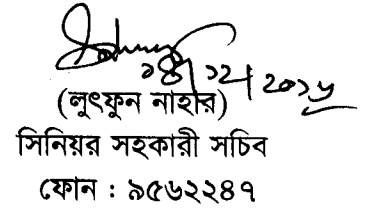 ১৪/১২/২০১৬
(লুৎফুন নাহার)
সিনিয়র সহকারী সচিব
ফোন : ৯৫৬২২৪৭